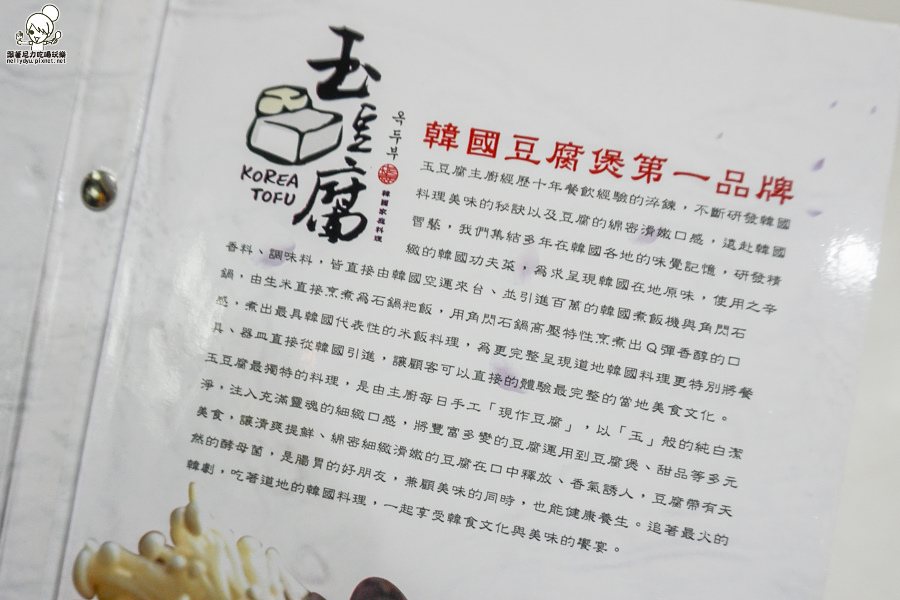 跟著尼力吃喝玩樂
nellydyu.pixnet.net
玉豆腐
옥두부
韓國家庭料理
KOREA
TOFU
韓國豆腐煲第一品牌
玉豆腐主廚經歷十年餐飲經驗的淬鍊，不斷研發韓國
料理美味的秘訣以及豆腐的綿密滑嫩口感，遠赴韓國
習藝，我們集結多年在韓國各地的味覺記憶，研發精
緻的韓國功夫菜，為求呈現韓國在地原味，使用之辛
香料、調味料，皆直接由韓國空運來台、並引進百萬的韓國煮飯機與角閃石
鍋，由生米直接烹煮為石鍋粑飯，用角閃石鍋高壓特性烹煮出Q彈香醇的口
感，煮出最具韓國代表性的米飯料理，為更完整呈現道地韓國料理更特別將餐
具、器皿直接從韓國引進，讓顧客可以直接的體驗最完整的當地美食文化。
玉豆腐最獨特的料理，是由主廚每日手工「現作豆腐」，以「玉」般的純白潔
淨，注入充滿靈魂的細緻口感，將豐富多變的豆腐運用到豆腐煲、甜品等多元
美食，讓清爽提鮮、綿密細緻滑嫩的豆腐在口中釋放、香氣誘人，豆腐帶有天
然的酵母菌，是腸胃的好朋友，兼顧美味的同時，也能健康養生。追著最火的
韓劇，吃著道地的韓國料理，一起享受韓食文化與美味的饗宴。